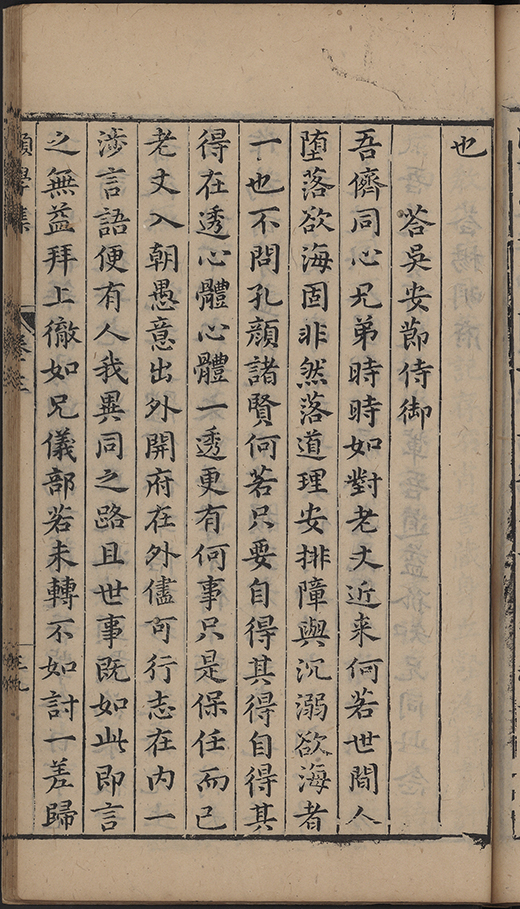 也
答吳安節侍御
吾儕同心兄弟時時如對老丈近来何若世間人
墮落欲海固非然落道理安排障與沉溺欲海者
一也不問孔顏諸賢何若只要自得其得自得其
得在透心體心體一透更有何事只是保任而已
老丈入朝愚意出外開府在外儘可行志在內一
涉言語便有人我異同之路且世事既如此即言
之無益拜上徹如兄儀部若未轉不如討一差歸
學集 卷之